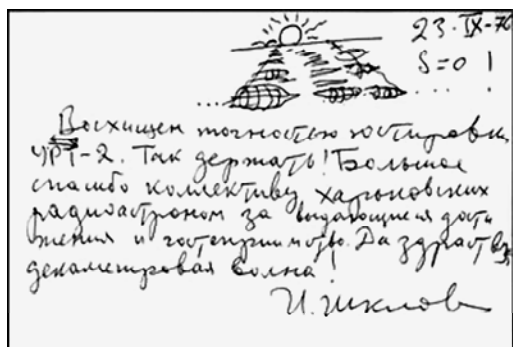 23·IX-76
S=0 !
Восхищен точностью юстировки
УРТ-2. Так держать! Большое
спасибо коллективу харьковских
радиоастроном за выдающиеся дости
жения и гостеприимство. Да здравств
декаметровая волна!
И. Шклов